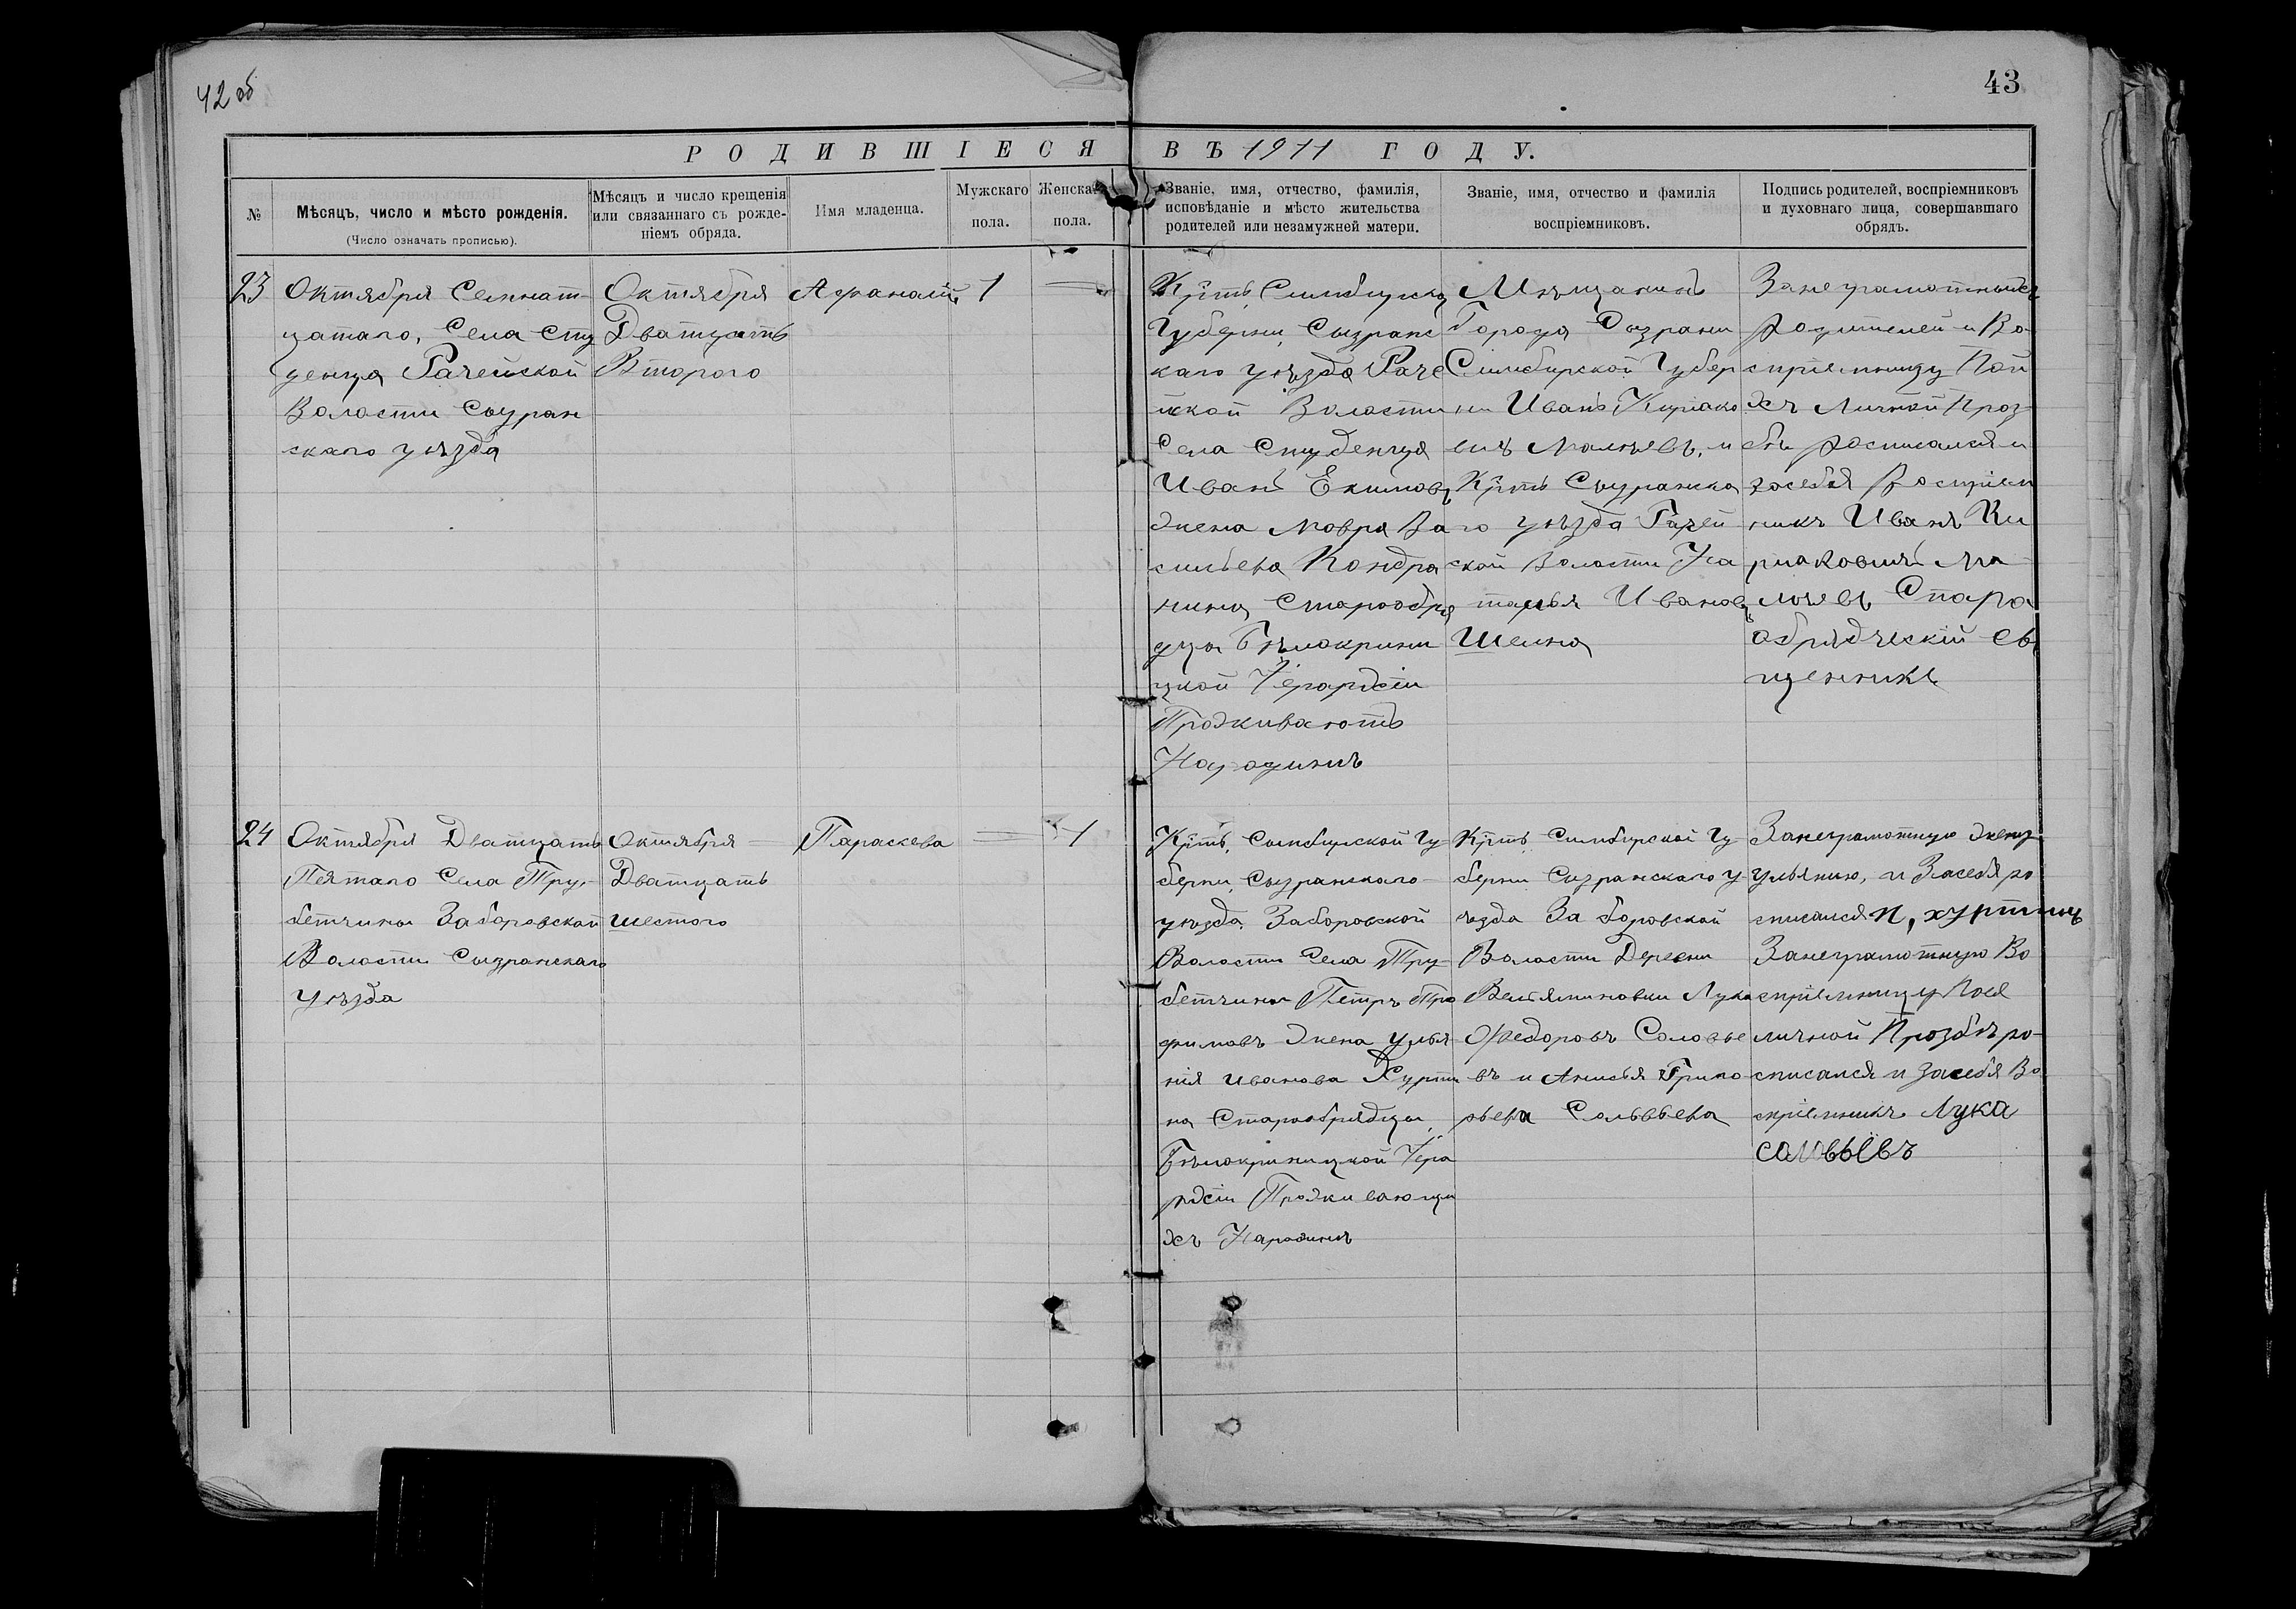 42 об
43
РОДИВШІЕСЯ ВЪ 1911 ГОДУ.
№
Мѣсяцъ, число и мѣсто рожденія.
(Число означать прописью).
Мѣсяцъ и число крещенія
или связаннаго съ рожде-
ніемъ обряда.
Имя младенца.
Мужскаго
пола.
Женска
пола.
Званіе, имя, отчество, фамилія,
исповѣданіе и мѣсто жительства
родителей или незамужней матери.
Званіе, имя, отчество и фамилія
воспріемниковъ.
Подпись родителей, воспріемниковъ
и духовнаго лица, совершавшаго
обрядъ.
23
Октября Семнат
цатаго, Села Сту
денца Рачейской
Волости Сызран
скаго уѣзда
Октября
Дватцать
Второго
Афанасій
1
Крть Симбирско
Губерни, Сызранс
каго уѣзда Раче
йской Волости
Села Студенца
Иванъ Екимовъ
жена Мавра Ва
сильева Кондра
нина Старообря
дца Бѣлокрини
цкой Іерархіи
Проживаютъ
Народинѣ
Мѣщанинъ
Города Сызрани
Симбирской Губер
ни Иванъ Киріако
вичъ Малѣевъ, и
Крть Сызранска
го уѣзда Рачей
ской Волости На
талья Иванов
Шеина
Занеграмотныхъ
Родителей и Во
спріемницу Пои
хъ Личной Прозь
бѣ росписался и
засебя Воспріем
никъ Иванъ Ки
риаковичъ Ма
лѣевъ Стара
обрядческій Св
щенникъ
24
Октября Дватцать
Пятаго Села Тру-
бетчины Заборовской
Волости Сызранскаго
уѣзда
Октября
Дватцать
шестого
Параскева
1
Крть, Симбирской Гу
берни, Сызранскаго
уѣзда, Заборовской
Волости Села Тру-
бетчины Петръ Тро
фимовъ Жена улья
нія Иванова Хурти
на Старообрядцы,
Бѣлокриницкой Іера
рхіи Проживающи
хъ Народинѣ
Крть, Симбирской Гу
берни Сызранскаго у
ѣзда Заборовской
Волости Деревни
Вельяминовки Лука
Федоровъ Соловье
въ и Анисья Григо
рьева Сольвьева
Занеграмотную жену
ульянию, и Засебя ро
списался П, хуртинъ
Занеграмотную Во
спріемницу Поея
личной Прозбѣ ро-
списался и засебя Во
спріемникъ Лука
саловьёвъ